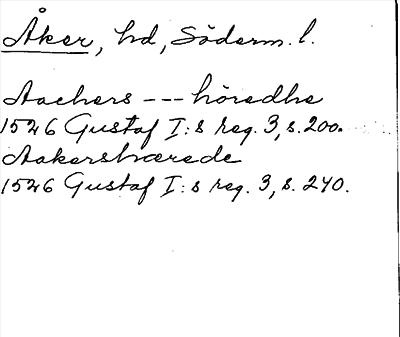 Åker, hd, Söderm. l.
Aachers --- höredhe
1526 Gustaf I:s reg. 3, s. 200.
Aakershærede
1526 Gustaf I:s reg. 3, s. 240.